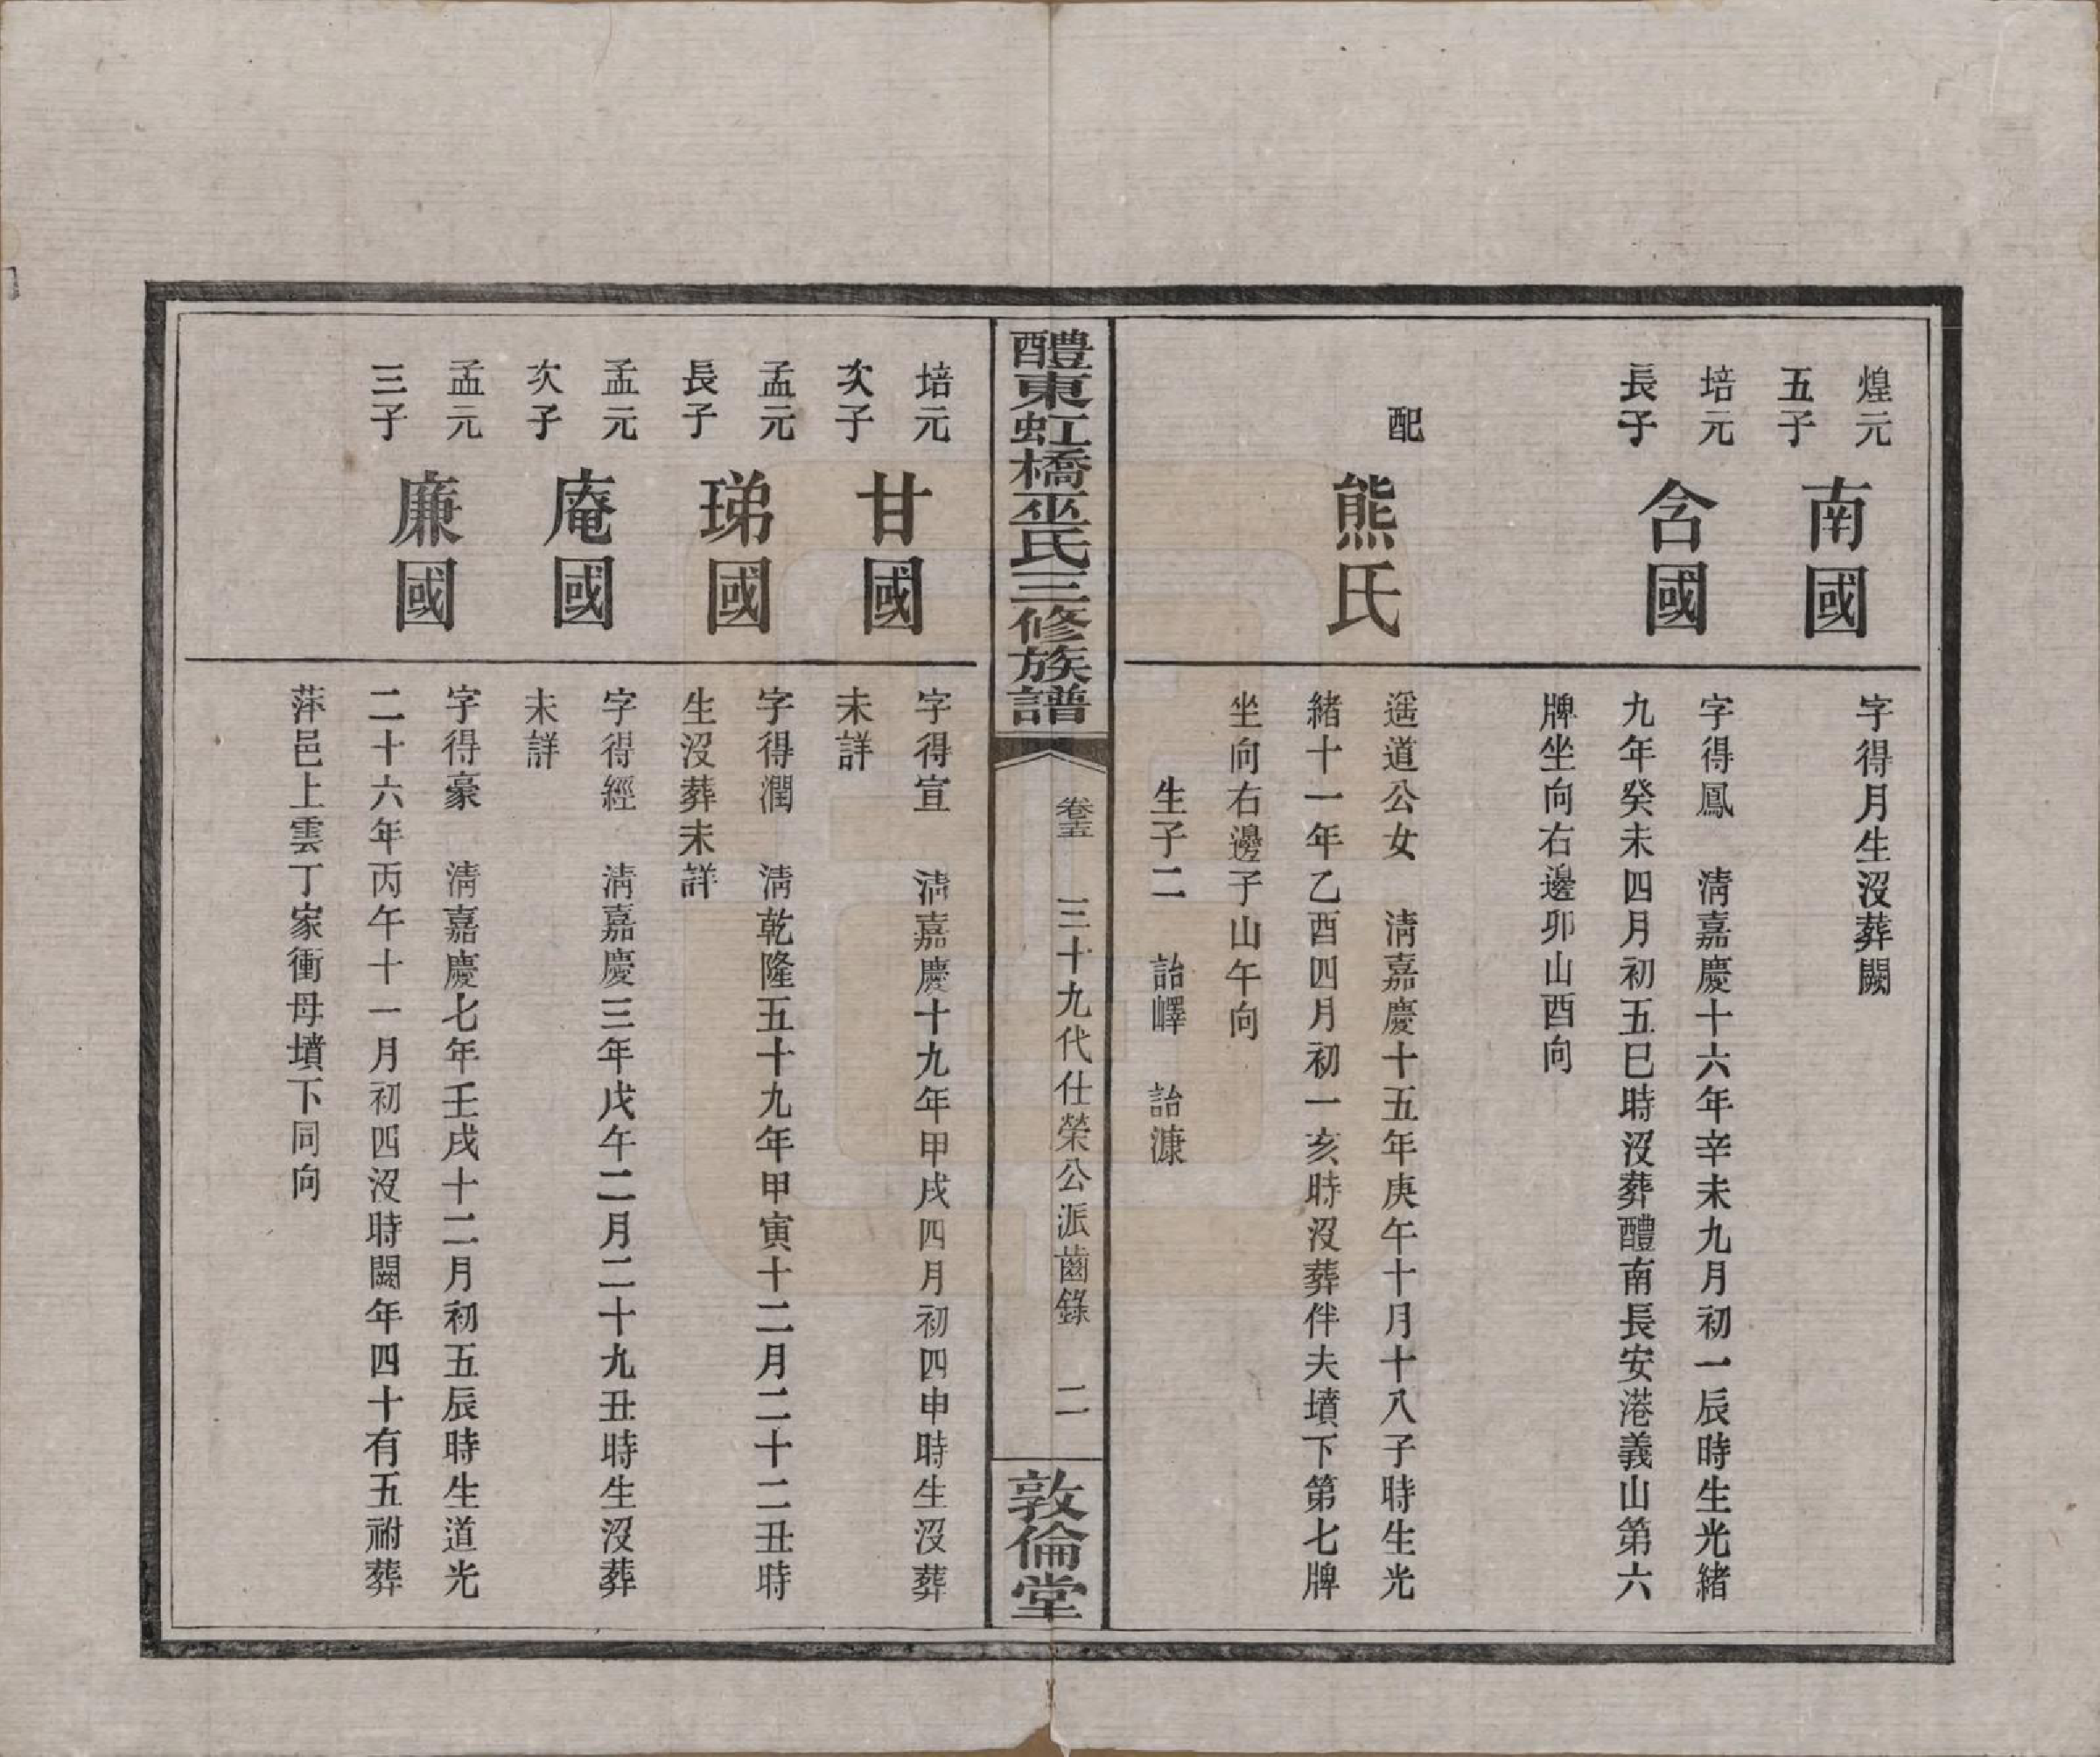 煌元
五子
南國
字得月生沒葬闕
培元
長子
含國
字得鳳　清嘉慶十六年辛未九月初一辰時生光緒
九年癸未四月初五巳時沒葬醴南長安港義山第六
牌坐向右邊卯山酉向
配
熊氏
遥道公女　清嘉慶十五年庚午十月十八子時生光
緒十一年乙酉四月初一亥時沒葬伴夫墳下第七牌
坐向右邊子山午向
生子二　詒嶧　詒漮
醴東虹橋巫氏三修族譜
卷五
三十九代仕榮公派齒錄
二
敦倫堂
培元
次子
甘國
字得宣　清嘉慶十九年甲戌四月初四申時生沒葬
未詳
孟元
長子
珶國
字得潤　清乾隆五十九年甲寅十二月二十二丑時
生沒葬未詳
孟元
次子
庵國
字得經　清嘉慶三年戊午二月二十九丑時生沒葬
未詳
孟元
三子
廉國
字得豪　清嘉慶七年壬戌十二月初五辰時生道光
二十六年丙午十一月初四沒時闕年四十有五祔葬
萍邑上雲丁家衝母墳下同向